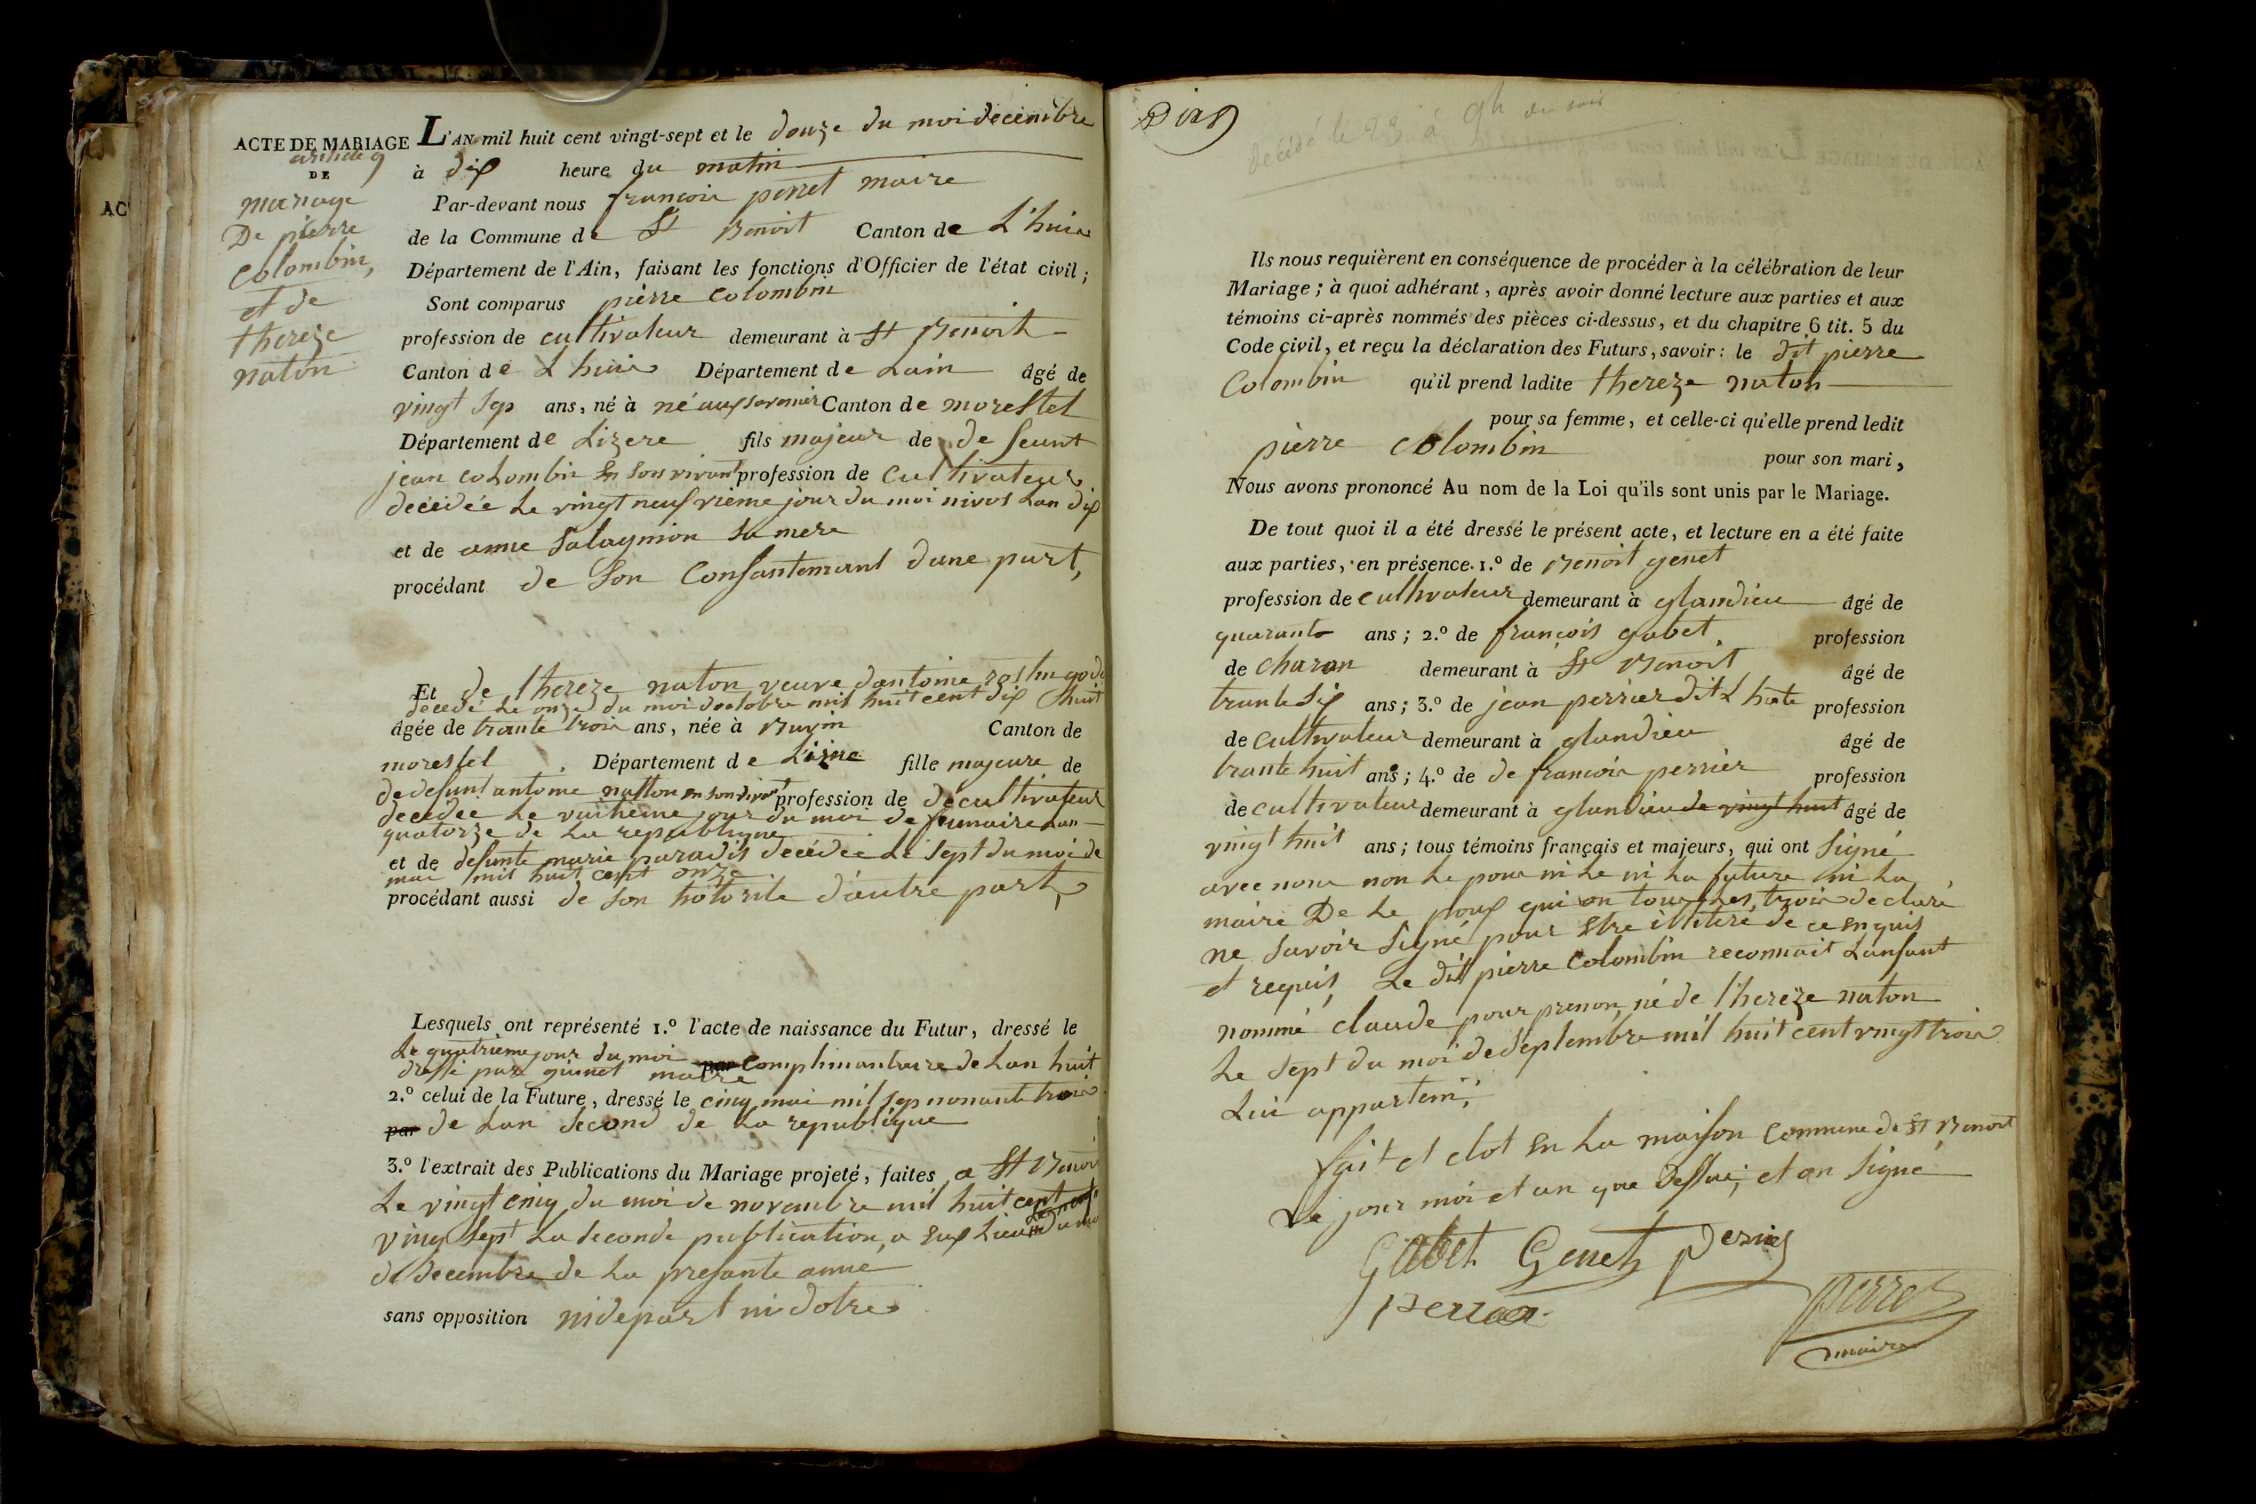 ACTE DE MARIAGE
article 9
DE
mariage
De pierre
Colombin,
et de
thereze
naton
AC
L'AN mil huit cent vingt-sept et le douze du moi decembre
à dix heure du matin
Par-devant nous françois perret maire
de la Commune de St Benoit Canton de L'huis
Département de l'Ain, faisant les fonctions d'Officier de l'état civil;
Sont comparus pièrre Colombin
profession de cultivateur demeurant à St Benoit
Canton de L huis Département de Lain âgé de
vingt sep ans, né à né aux Canton de morestel
Département de Lizere fils majeur de de feunt
jean colombin En son vivant profession de Cultivateur
decédée Le vingt neufvieme jour du moi nivos Lan dix
et de anne Salaymon sa mere
procédant de Son Consantemant dune part,
Et de thereze naton veuve dantoine
decedé Le onze du moi doctobre mil huit cent dix huit
âgée de trante troi ans, née à Buvin Canton de
morestel Département de Lizere fille majeure de
de defunt antoine natton en son vivant profession de de cultivateur
decédée Le vuitieme jour du moi de frimaire Lan
quatorze de La republique
et de defunte marie paradis decédée Le sept du moi de
mai mil huit cent onze
procédant aussi de son hotorite d'autre part,
Lesquels ont représenté 1.º l'acte de naissance du Futur, dressé le
Le quatrieme jour du moi par complimantaire de Lan huit
dressé par guinet maire
2.º celui de la Future, dressé le cinq mai mil sep nonante troi
par de Lan second de La republique
3.º l'extrait des Publications du Mariage projeté, faites a St Benoit
Le vingt cinq du moi de novambre mil huit cent
ving sept La seconde publication, a eux Lieu du moi
de decembre de La presante anne
sans opposition ni de part ni dotre
decédé le 23 à 9h du soir
Ils nous requièrent en conséquence de procéder à la célébration de leur
Mariage; à quoi adhérant, après avoir donné lecture aux parties et aux
témoins ci-après nommés des pièces ci-dessus, et du chapitre 6 tit. 5 du
Code civil, et reçu la déclaration des Futurs, savoir: le dit pierre
Colombin qu'il prend ladite thereze naton
pour sa femme, et celle-ci qu'elle prend ledit
pièrre colombin pour son mari,
Nous avons prononcé Au nom de la Loi qu'ils sont unis par le Mariage.
De tout quoi il a été dressé le présent acte, et lecture en a été faite
aux parties, en présence. 1.º de Benoit genet
profession de cultivateur demeurant à glandieu âgé de
quarante ans; 2.º de françois gabet profession
de charon demeurant à St Benoit âgé de
trante six ans; 3.º de jean perrier dit L hote profession
de cultivateur demeurant à glandieu âgé de
trante huit ans; 4.º de de françois perrier profession
de cultivateur demeurant à glandieu de vingt huit âgé de
vingt huit ans; tous témoins français et majeurs, qui ont signé
avec nous non Le pour ni Le ni La future ni La
maire De Le poux qui on tous Les troi declaré
ne savoir signé pour Etre illiteré de ce Enquis
et requis, Le dit pierre Colombin reconnait Lanfant
nommé claude pour prenon, né de thereze naton
Le sept du moi de septembre mil huit cent vingt troi
Lui appartenir;
fait et clot En La maison Commune de St Benoit
Le jour moi et an que dessus; et on signé
Gabet Genet perrier
perrier
perret
maire